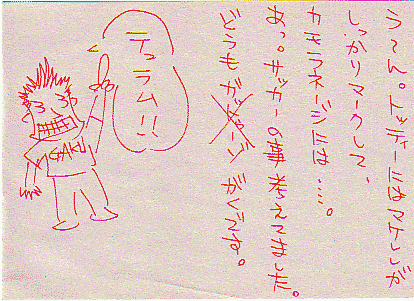 うーん。トッティーにはマケレレが
しっかりマークして、
カモラネージには….。
あっ。サッカーの事考えてました。
どうも がくです。
テュラム!!
GAKU